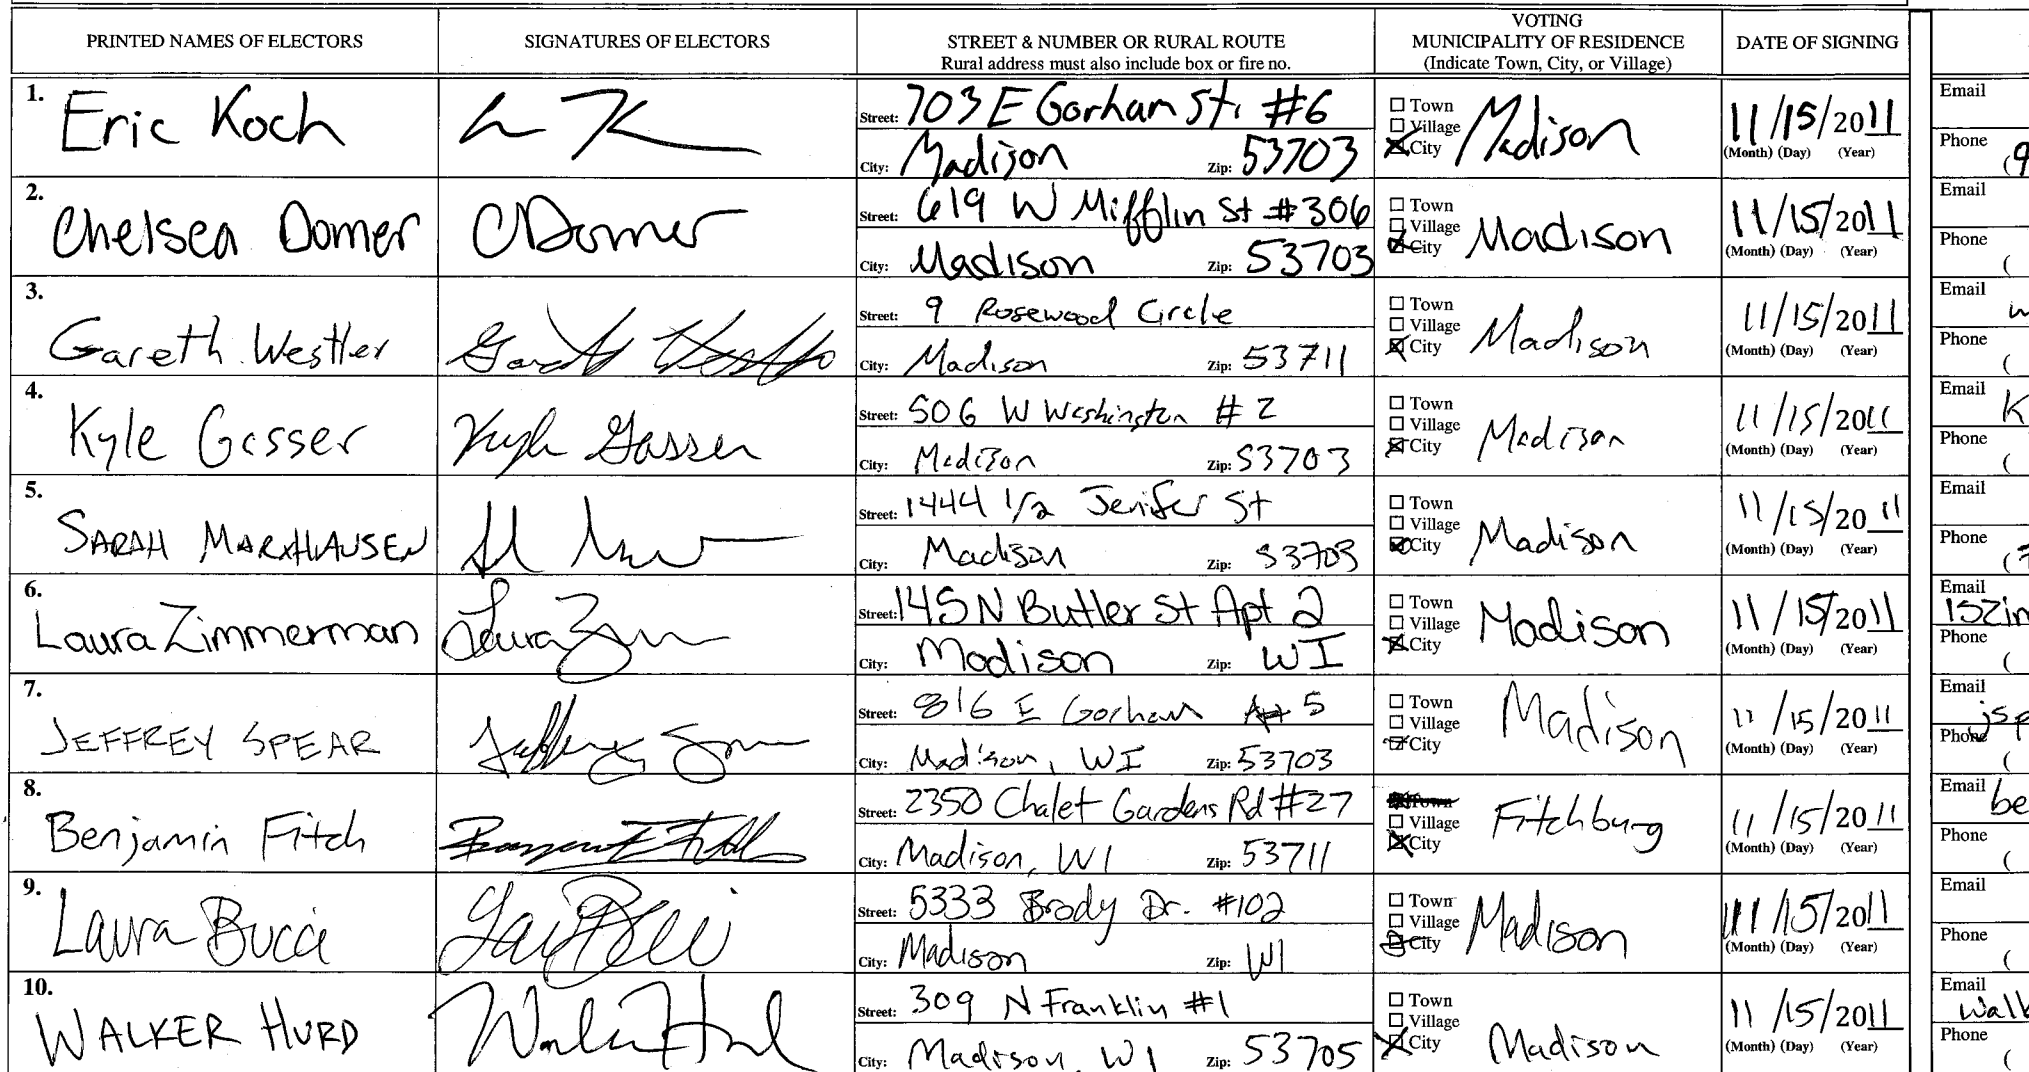 PRINTED NAMES OF ELECTORS
SIGNATURES OF ELECTORS
STREET & NUMBER OR RURAL ROUTE
Rural address must also include box or fire no.
VOTING
MUNICIPALITY OF RESIDENCE
(Indicate Town, City, or Village)
DATE OF SIGNING
1. Eric Koch
Street: 703 E Gorham St. #6
City: Madison Zip: 53703
Town
Village
City
Madison
11/15/2011
(Month) (Day) (Year)
Email
Phone (9
2. Chelsea Domer
CDomer
Street: 619 W Mifflin St #306
City: Madison Zip: 53703
Town
Village
City
Madison
11/15/2011
(Month) (Day) (Year)
Email
Phone (
3. Gareth Westler
Street: 9 Rosewood Circle
City: Madison Zip: 53711
Town
Village
City
Madison
11/15/2011
(Month) (Day) (Year)
Email w
Phone (
4. Kyle Gasser
Kyle Gasser
Street: 506 W Washington #2
City: Madison Zip: 53703
Town
Village
City
Madison
11/15/2011
(Month) (Day) (Year)
Email K
Phone (
5. SARAH MARXHAUSEN
Street: 1444 1/2 Jenifer St
City: Madison Zip: 53703
Town
Village
City
Madison
11/15/2011
(Month) (Day) (Year)
Email
Phone (7
6. Laura Zimmerman
Laura
Street: 145 N Butler St Apt 2
City: Madison Zip: WI
Town
Village
City
Madison
11/15/2011
(Month) (Day) (Year)
Email lszim
Phone (
7. JEFFREY SPEAR
Jeffrey
Street: 816 E Gorham Apt 5
City: Madison, WI Zip: 53703
Town
Village
City
Madison
11/15/2011
(Month) (Day) (Year)
Email jsp
Phone (
8. Benjamin Fitch
Street: 2350 Chalet Gardens Rd #27
City: Madison, WI Zip: 53711
Town
Village
City
Fitchburg
11/15/2011
(Month) (Day) (Year)
Email be
Phone (
9. Laura Bucci
Street: 5333 Brody Dr. #102
City: Madison Zip: WI
Town
Village
City
Madison
11/15/2011
(Month) (Day) (Year)
Email
Phone (
10. WALKER HURD
Street: 309 N Franklin #1
City: Madison, WI Zip: 53705
Town
Village
City
Madison
11/15/2011
(Month) (Day) (Year)
Email walk
Phone (